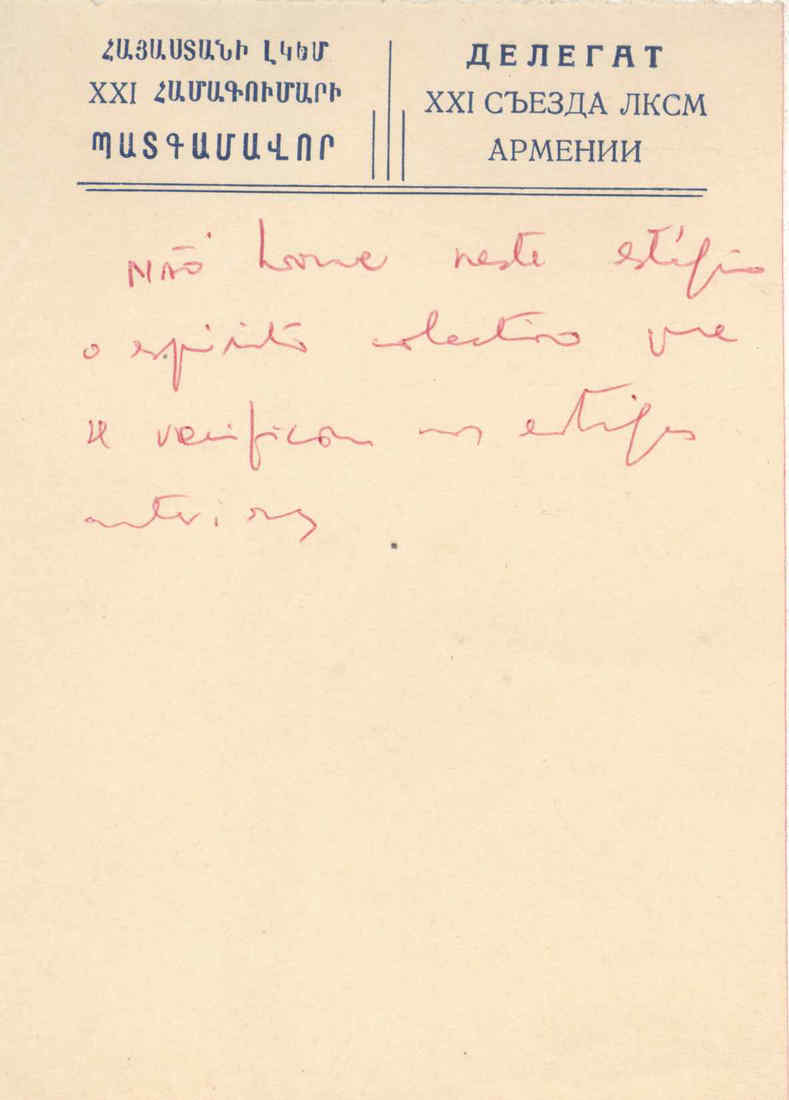 ՀԱՅԱՍՏԱՆԻ ԼԿԵՄ
XXI ՀԱՄԱԳՈՒՄԱՐԻ
ՊԱՏԳԱՄԱՎՈՐ
ДЕЛЕГАТ
XXI СЪЕЗДА ЛКСМ
АРМЕНИИ
NÃO houve neste estágio
o espírito colectivo que
se verificou nos estágios
anteriores